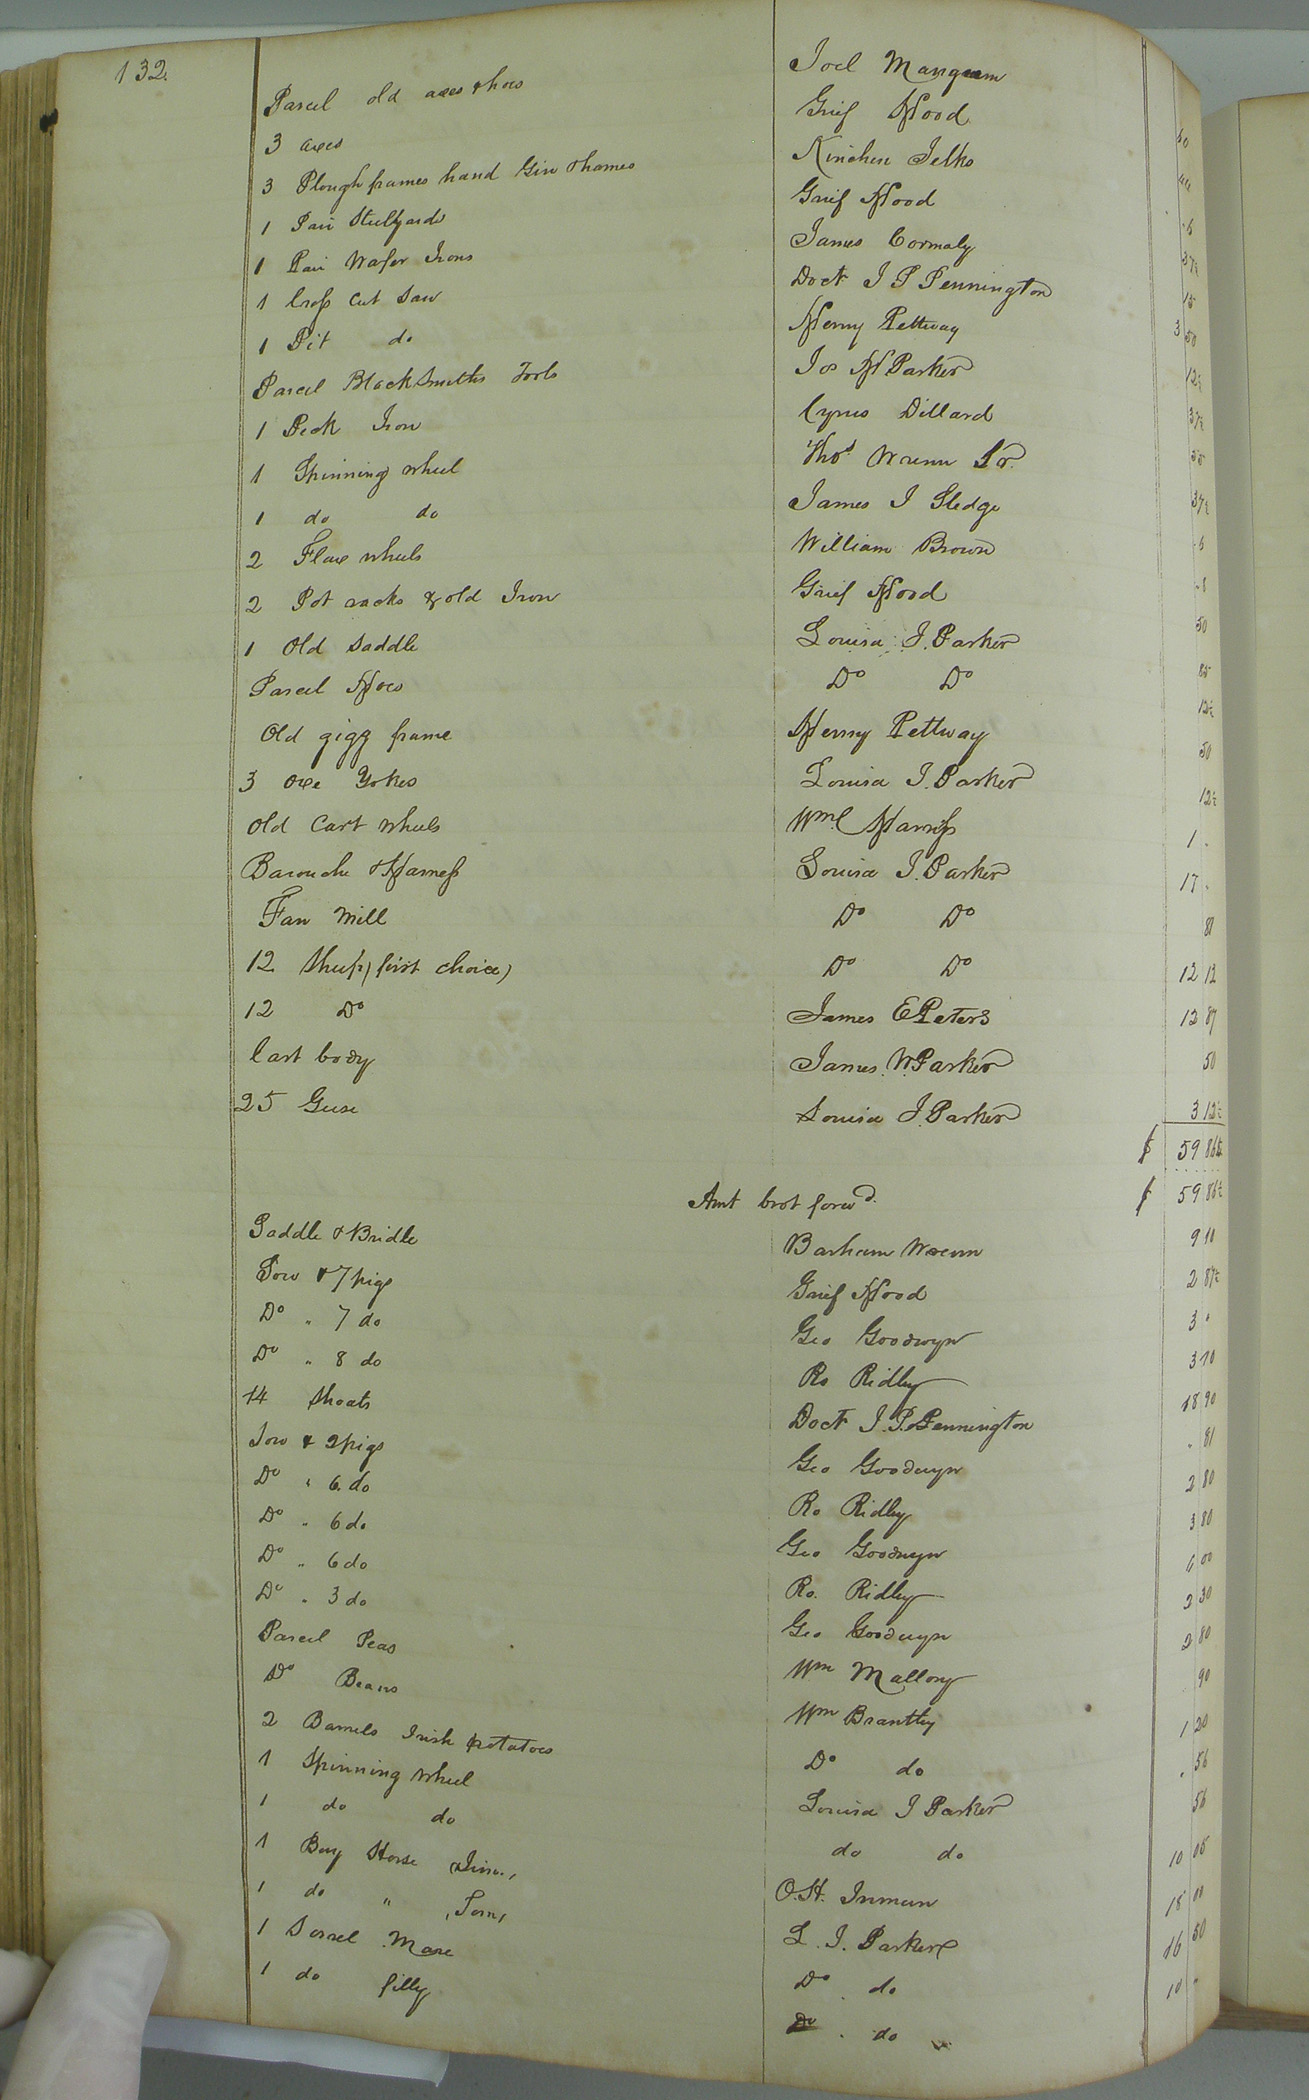 132.
Parcel old axes & hoes Joel Mangum
3 axes Grief Hood
3 Plough frames hand Gin & hames Kinchen Jelks 6
1 Pair Steelyards Grief Hood 37½
1 Pair Wafer Irons James Cormaly 15
1 Cross Cut Saw Doctr J P Pennington 3 50
1 Pit do Henry Pettway 12½
Parcel BlackSmiths Tools Jos H Parker 37½
1 Peck Iron Cyrus Dillard 25
1 Spinning wheel Thos Wrenn Sr. 37½
1 do do James J Sledge 6
2 Flaxe wheels William Brown 6
2 Pot racks & old Iron Grief Hood 50
1 Old saddle Louisa J. Parker 25
Parcel Hoes Do Do 12½
Old gigg frame Henry Pettway 50
3 oxe Yokes Louisa J. Parker 12½
Old Cart wheels Wm C Harriss 1 .
Barouche & Harness Louisa J. Parker 17 .
Fan Mill Do Do 81
12 Sheep (first choice) Do Do 12 12
12 Do James E Peters 12 87
Cart body James. W Parker 50
25 Geese Louisa J. Parker 3 12½
$ 59 86½
Amt brot forwd. $ 59 86½
Saddle & Bridle Barham Wrenn 9 10
Sow & 7 pigs Grief Hood 2 87½
Do " 7 do Geo Goodwyn 3 .
Do " 8 do Ro Ridley 3 10
14 Shoats Doctr J. P. Pennington 18 90
Sow & 2 pigs Geo Goodwyn . 81
Do " 6 do Ro Ridley 2 80
Do " 6 do Geo Goodwyn 3 80
Do " 6 do Ro. Ridley 4 00
Do " 3 do Geo Goodwyn 2 30
Parcel Peas Wm Mallory 2 80
Do Beans Wm Brantley 90
2 Barrels Irish potatoes Do do 1 20
1 Spinning Wheel Louisa J Parker . 56
1 do do do do 56
1 Bay Horse O. H. Inman 10 05
1 do " (Tom) L. J. Parker 18 00
1 Sorrel Mare Do . do 16 50
1 do filly Do . do 10 .